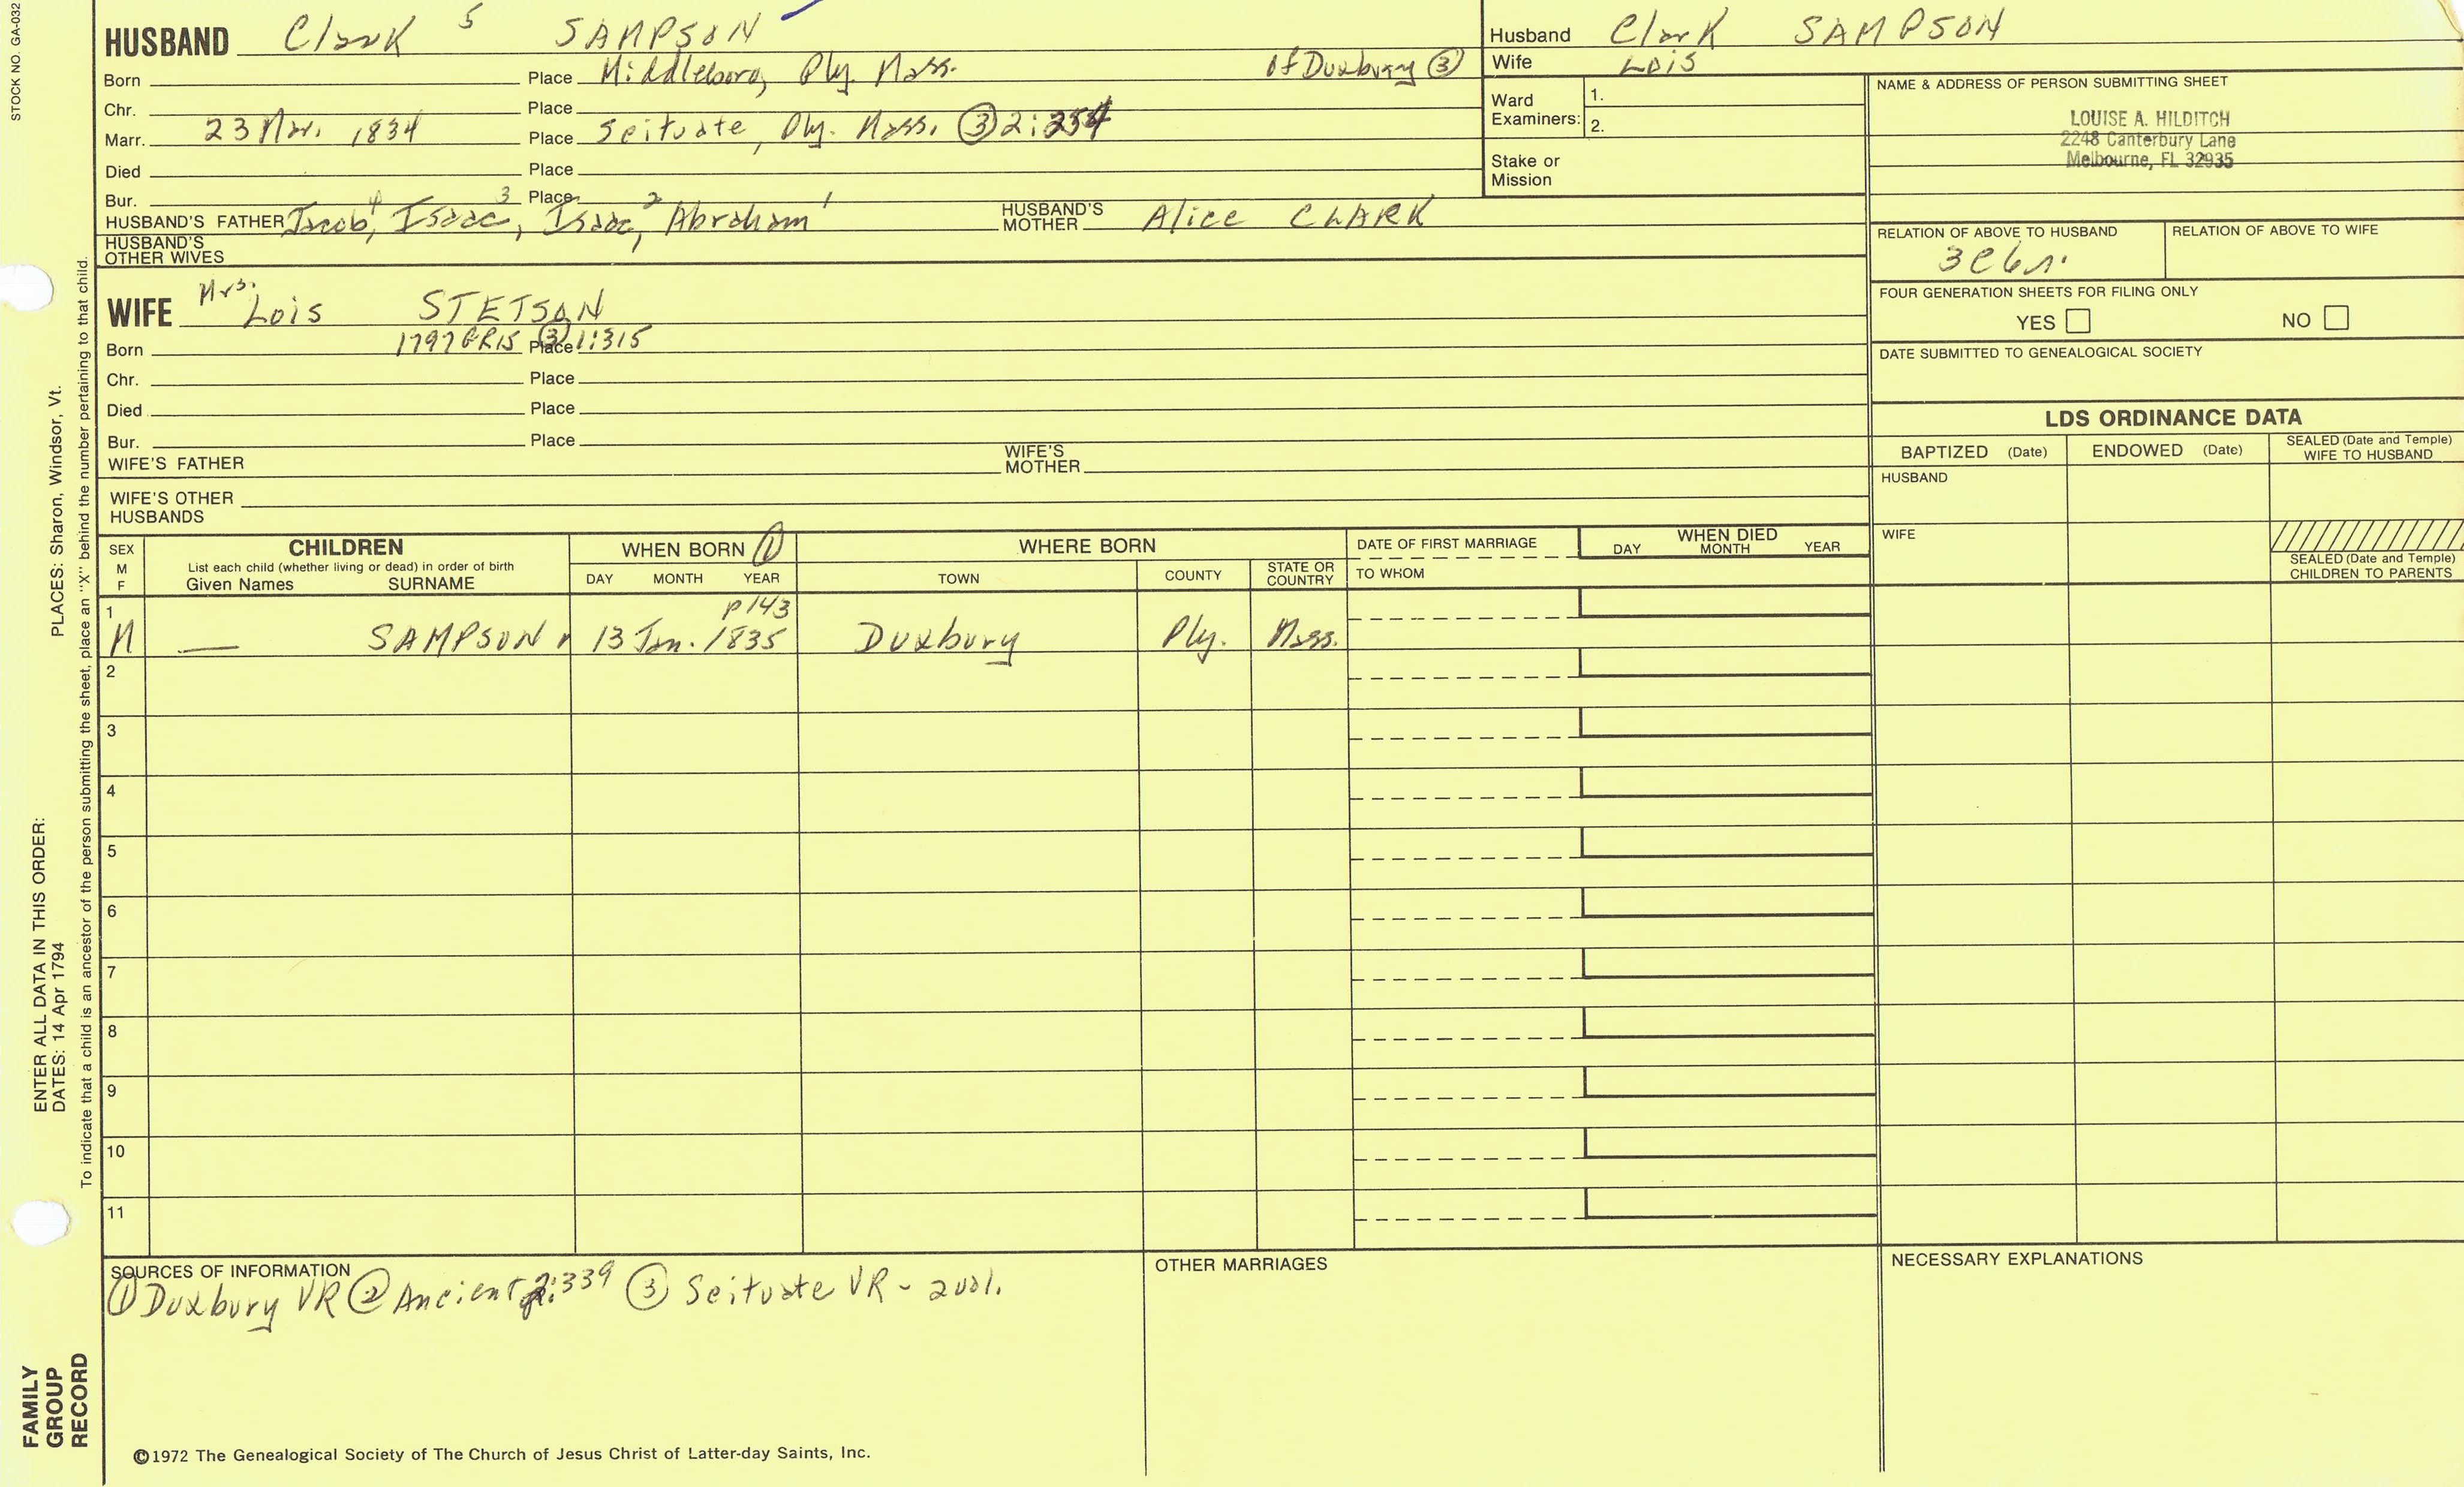 STOCK NO. GA-032
HUSBAND Clark 5 SAMPSON
Born Place Middleboro, Ply. Mass. of Duxbury ③
Chr. Place
Marr. 23 Mar. 1834 Place Scituate, Ply. Mass. ③ 2:254
Died Place
Bur. Place
HUSBAND'S FATHER Jacob 4, Isaac 3, Isaac 2, Abraham 1 HUSBAND'S MOTHER Alice CLARK
HUSBAND'S OTHER WIVES
WIFE Mrs. Lois STETSON
Born 1797 GR15 Place ③ 1:315
Chr. Place
Died Place
Bur. Place
WIFE'S FATHER WIFE'S MOTHER
WIFE'S OTHER HUSBANDS
Husband Clark SAMPSON
Wife LOIS
Ward Examiners: 1. 2.
Stake or Mission
NAME & ADDRESS OF PERSON SUBMITTING SHEET
LOUISE A. HILDITCH
2248 Canterbury Lane
Melbourne, FL 32935
RELATION OF ABOVE TO HUSBAND RELATION OF ABOVE TO WIFE
3C6r.
FOUR GENERATION SHEETS FOR FILING ONLY
YES NO
DATE SUBMITTED TO GENEALOGICAL SOCIETY
LDS ORDINANCE DATA
BAPTIZED (Date) ENDOWED (Date) SEALED (Date and Temple) WIFE TO HUSBAND
HUSBAND
WIFE
SEALED (Date and Temple) CHILDREN TO PARENTS
SEX M F
CHILDREN
List each child (whether living or dead) in order of birth
Given Names SURNAME
WHEN BORN ①
DAY MONTH YEAR
WHERE BORN
TOWN COUNTY STATE OR COUNTRY
DATE OF FIRST MARRIAGE
TO WHOM
WHEN DIED
DAY MONTH YEAR
1 p143
M — SAMPSON 13 Jan. 1835 Duxbury Ply. Mass.
2
3
4
5
6
7
8
9
10
11
SOURCES OF INFORMATION
① Duxbury VR ② Ancient 2:339 ③ Scituate VR - 2 vol.
OTHER MARRIAGES
NECESSARY EXPLANATIONS
©1972 The Genealogical Society of The Church of Jesus Christ of Latter-day Saints, Inc.
FAMILY GROUP RECORD
ENTER ALL DATA IN THIS ORDER:
DATES: 14 Apr 1794 PLACES: Sharon, Windsor, Vt.
To indicate that a child is an ancestor of the person submitting the sheet, place an "X" behind the number pertaining to that child.